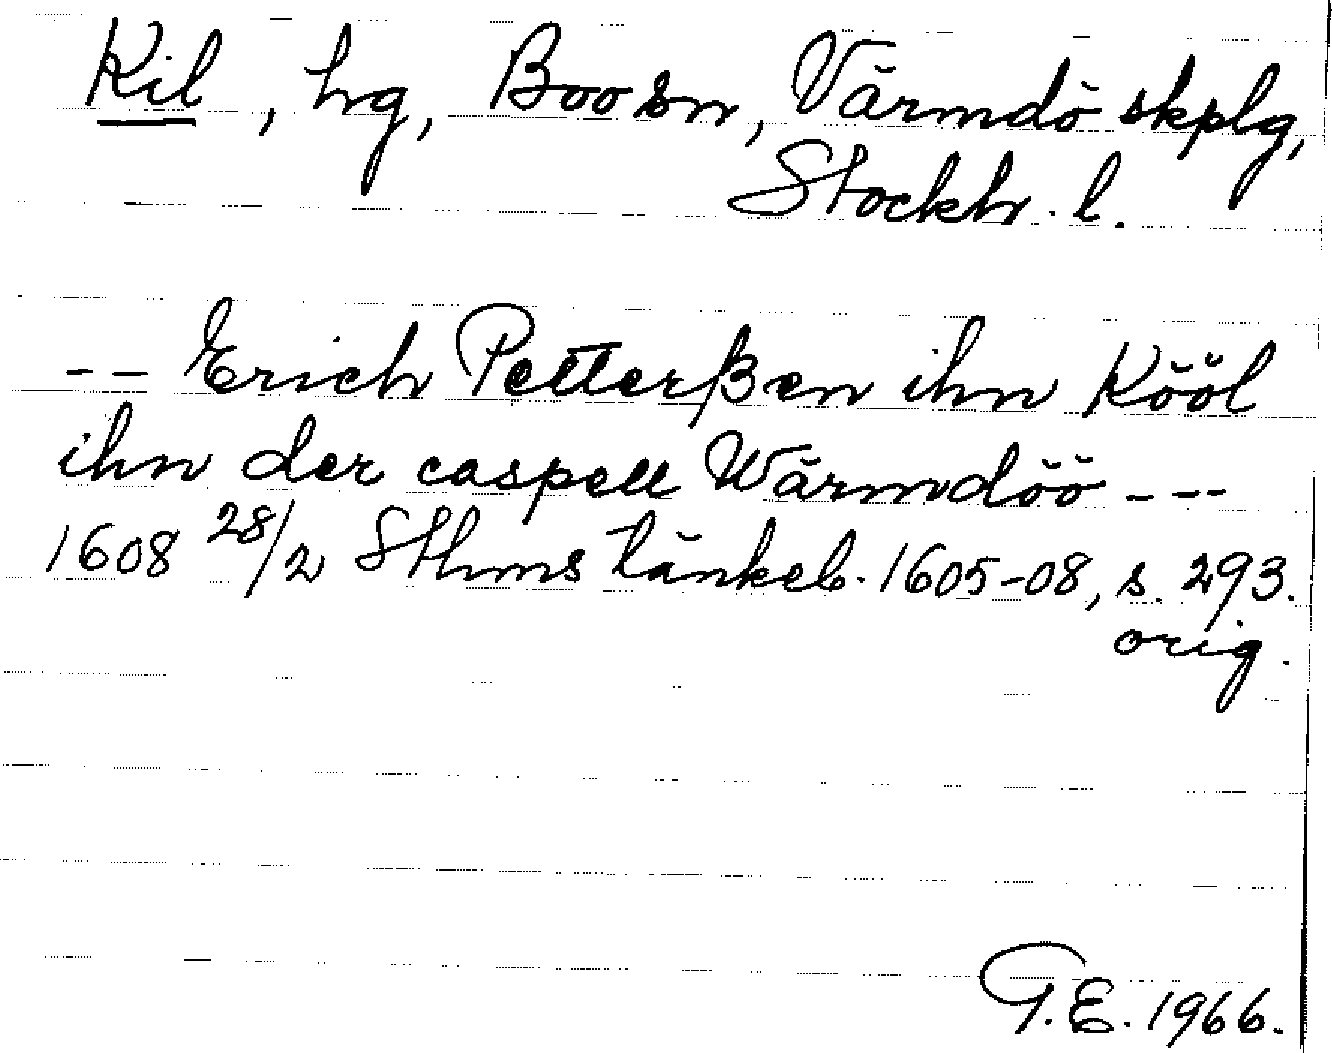 Kil, hg, Boo sn, Värmdö skplg,
Stockh. l.
-- Erich Petterßen ihn Kööl
ihn der caspell Wärmdöö ---
1608 28/2 Sthms tänkeb. 1605-08, s. 293.
orig.
G.E. 1966.